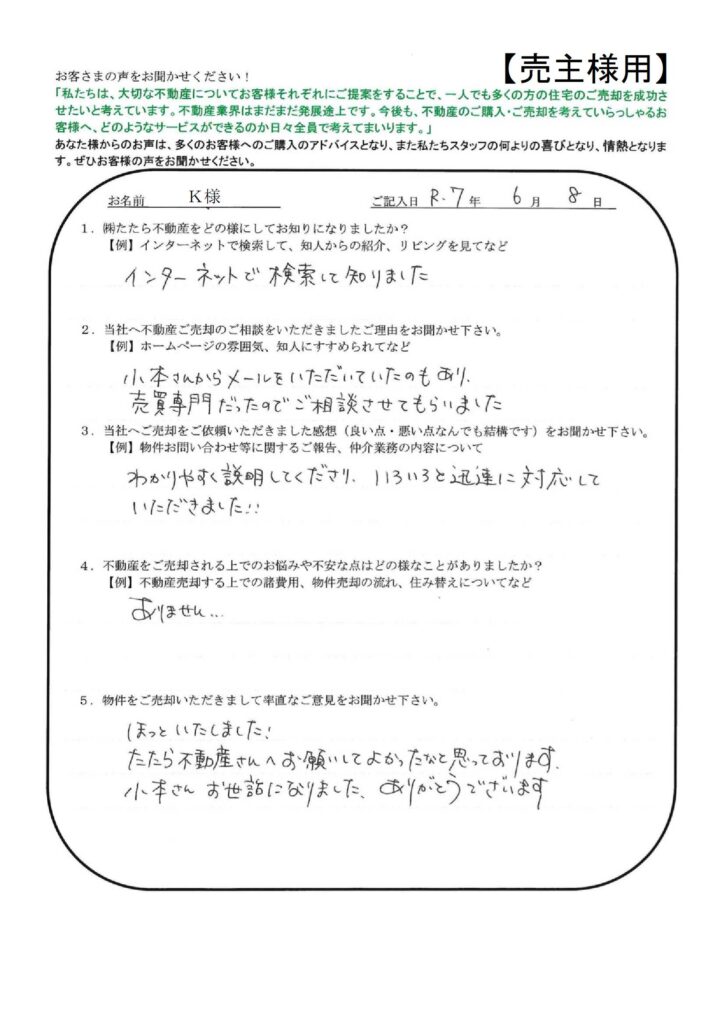 【売主様用】
お客さまの声をお聞かせください！
「私たちは、大切な不動産についてお客様それぞれにご提案をすることで、一人でも多くの方の住宅のご売却を成功さ
せたいと考えています。不動産業界はまだまだ発展途上です。今後も、不動産のご購入・ご売却を考えていらっしゃるお
客様へ、どのようなサービスができるのか日々全員で考えてまいります。」
あなた様からのお声は、多くのお客様へのご購入のアドバイスとなり、また私たちスタッフの何よりの喜びとなり、情熱となりま
す。ぜひお客様の声をお聞かせください。
お名前 K様 ご記入日 R.7年 6月 8日
１．㈱たたら不動産をどの様にしてお知りになりましたか？
【例】インターネットで検索して、知人からの紹介、リビングを見てなど
インターネットで検索して知りました
２．当社へ不動産ご売却のご相談をいただきましたご理由をお聞かせ下さい。
【例】ホームページの雰囲気、知人にすすめられてなど
小本さんからメールをいただいていたのもあり、
売買専門だったのでご相談させてもらいました
３．当社へご売却をご依頼いただきました感想（良い点・悪い点なんでも結構です）をお聞かせ下さい。
【例】物件お問い合わせ等に関するご報告、仲介業務の内容について
わかりやすく説明してくださり、いろいろと迅速に対応して
いただきました!!
４．不動産をご売却される上でのお悩みや不安な点はどの様なことがありましたか？
【例】不動産売却する上での諸費用、物件売却の流れ、住み替えについてなど
ありません...
５．物件をご売却いただきまして率直なご意見をお聞かせ下さい。
ほっといたしました!
たたら不動産さんへお願いしてよかったなと思っております。
小本さん お世話になりました、ありがとうございます